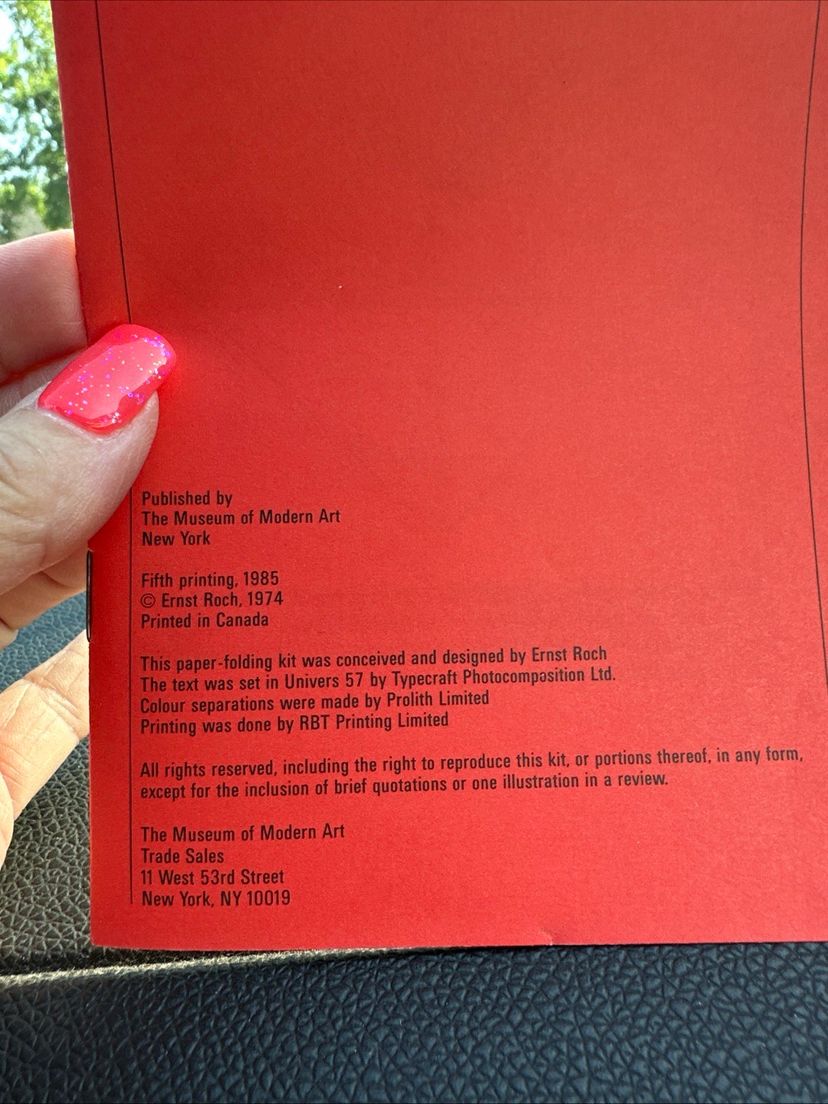 Published by
The Museum of Modern Art
New York
Fifth printing, 1985
© Ernst Roch, 1974
Printed in Canada
This paper-folding kit was conceived and designed by Ernst Roch
The text was set in Univers 57 by Typecraft Photocomposition Ltd.
Colour separations were made by Prolith Limited
Printing was done by RBT Printing Limited
All rights reserved, including the right to reproduce this kit, or portions thereof, in any form,
except for the inclusion of brief quotations or one illustration in a review.
The Museum of Modern Art
Trade Sales
11 West 53rd Street
New York, NY 10019